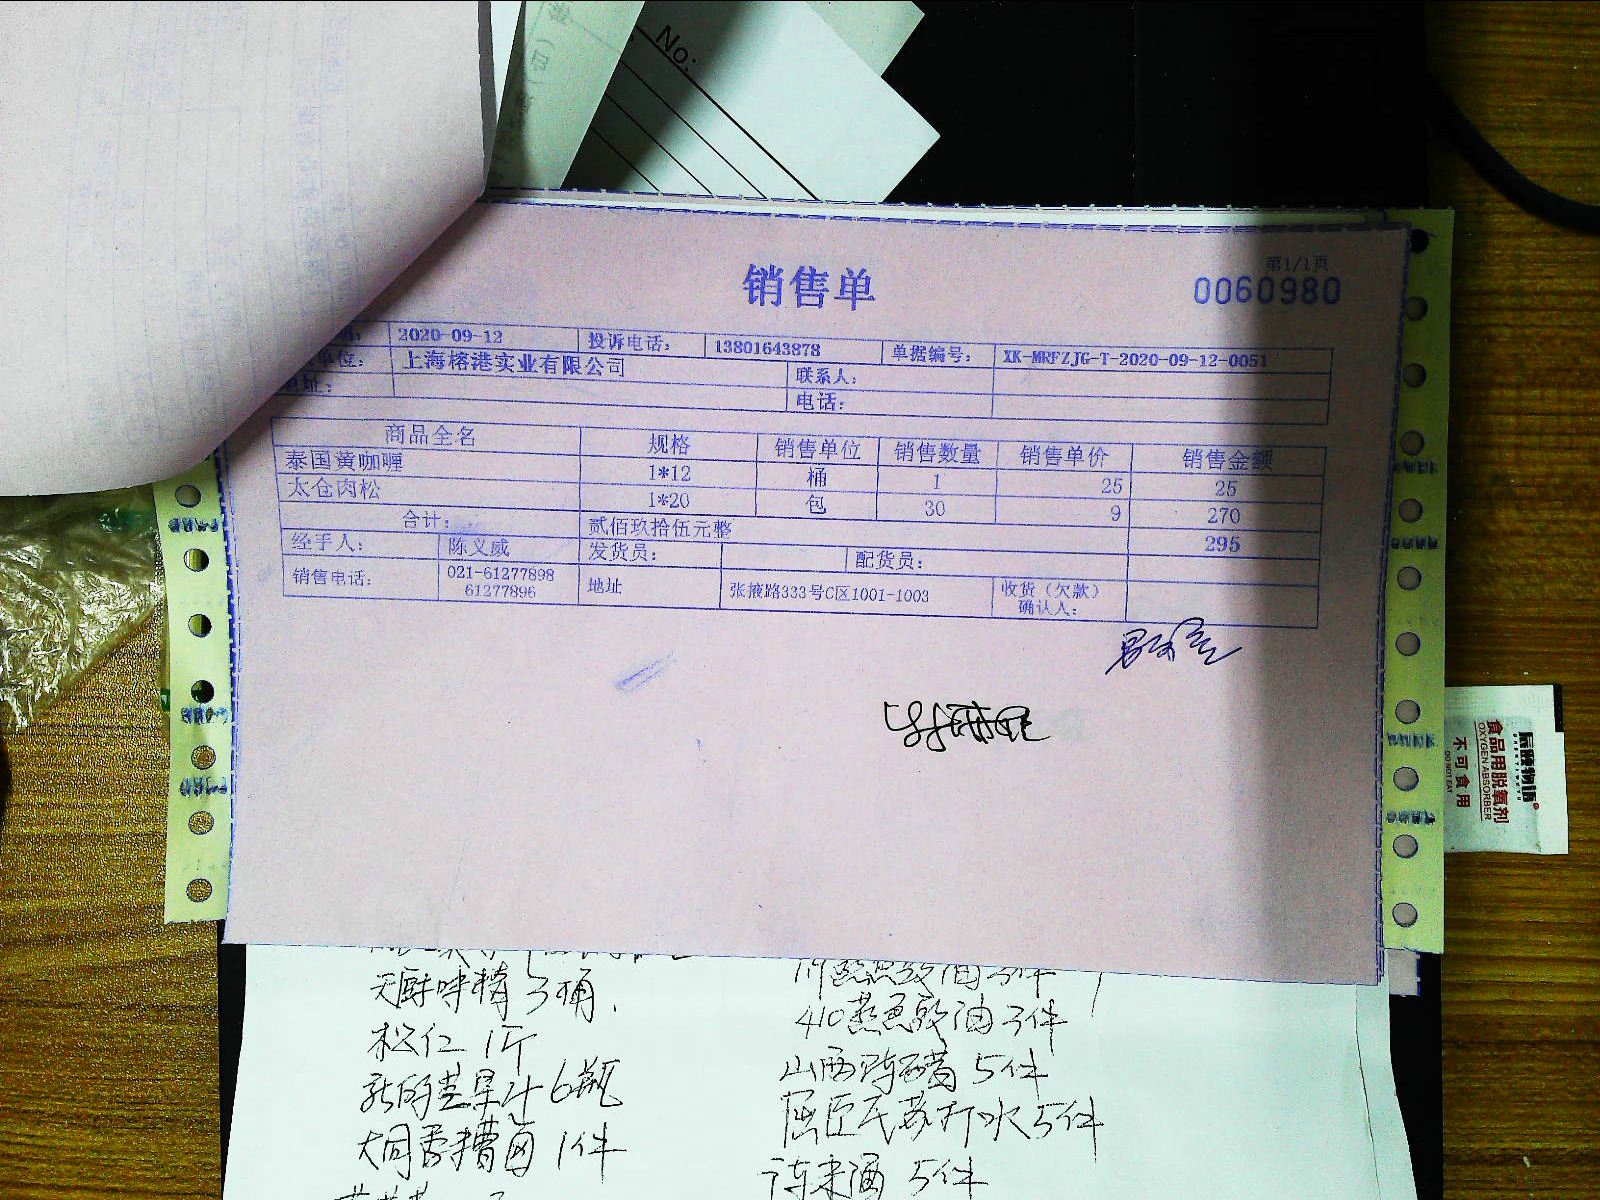 No:
销售单
第1/1页
0060980
2020-09-12 投诉电话: 13801643878 单据编号: XK-MRFZJG-T-2020-09-12-0051
单位: 上海榕港实业有限公司 联系人:
地址: 电话:
商品全名 规格 销售单位 销售数量 销售单价 销售金额
泰国黄咖喱 1*12 桶 1 25 25
太仓肉松 1*20 包 30 9 270
合计: 贰佰玖拾伍元整 295
经手人: 陈义威 发货员: 配货员:
销售电话: 021-61277898 61277896 地址 张掖路333号C区1001-1003 收货(欠款)确认人:
食品用脱氧剂
OXYGEN ABSORBER
不可食用
DO NOT EAT
天厨味精 3桶.
松仁 1斤
新的芒果汁 6瓶
大同香糟卤 1件
410蒸鱼豉油 3件
山西陈醋 5件
屈臣氏苏打水 5件
5件